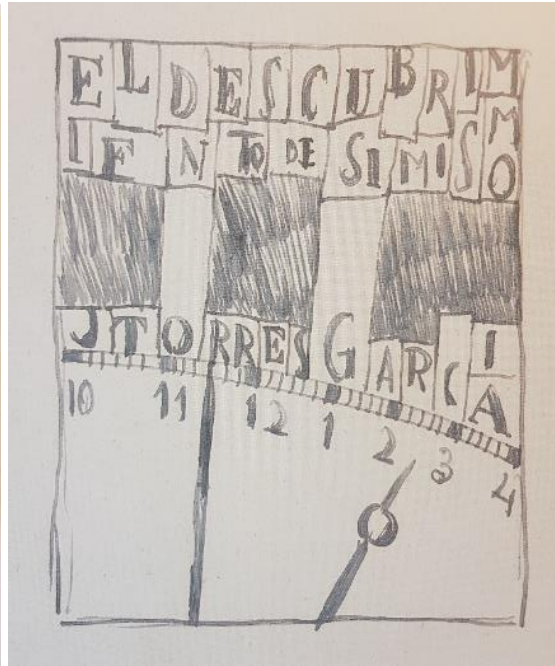 EL DESCUBRIM
IENTO DE SI MISMO
J TORRES GARCIA
10 11 12 1 2 3 4